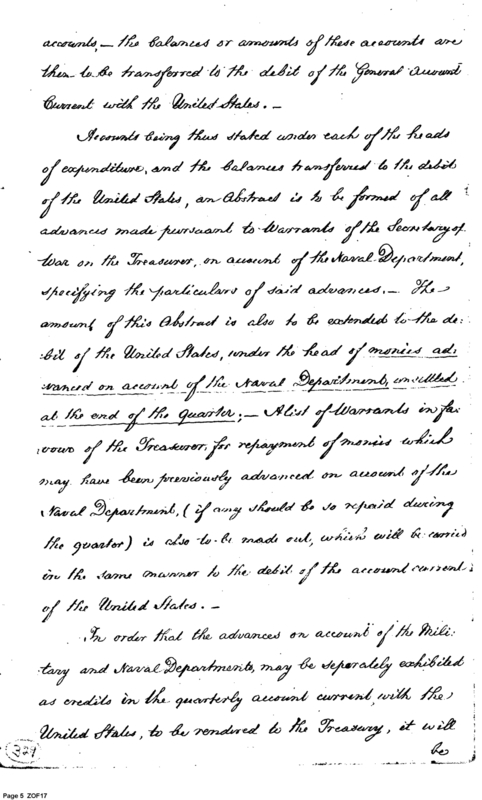 accounts, — the balances or amounts of these accounts are
then to be transferred to the debit of the General Account
Current with the United States. —
Accounts being thus stated under each of the heads
of expenditure, and the balances transferred to the debit
of the United States, an Abstract is to be formed of all
advances made pursuant to Warrants of the Secretary of
War on the Treasurer, on account of the Naval Department,
specifying the particulars of said advances. — The
amount of this Abstract is also to be extended to the de:
bit of the United States, under the head of monies ad:
vanced on account of the Naval Department, unsettled
at the end of the quarter; — A list of Warrants in fa:
vour of the Treasurer, for repayment of monies which
may have been previously advanced on account of the
Naval Department, (if any should be so repaid during
the quarter) is also to be made out, which will be carried
in the same manner to the debit of the account current
of the United States. —
In order that the advances on account of the Mili:
tary and Naval Departments, may be seperately exhibited
as credits in the quarterly account current, with the
United States, to be rendered to the Treasury, it will
be
329
Page 5 ZOF17